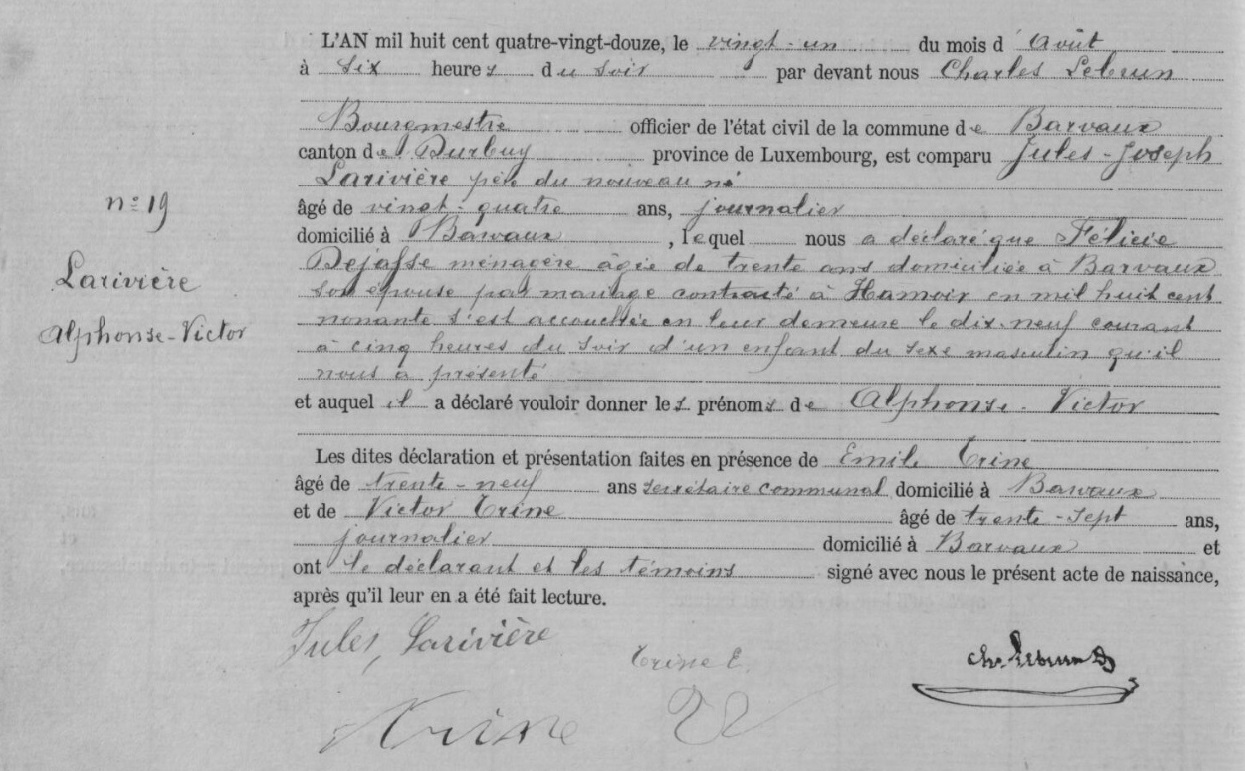 L'AN mil huit cent quatre-vingt-douze, le vingt-un du mois d'Août
à six heures du soir par devant nous Charles Lebrun
Bourgmestre officier de l'état civil de la commune de Barvaux
canton de Durbuy province de Luxembourg, est comparu Jules-Joseph
Larivière père du nouveau né
âgé de vingt-quatre ans, journalier
domicilié à Barvaux, lequel nous a déclaré que Félicie
Dejasse ménagère âgée de trente ans domiciliée à Barvaux
son épouse par mariage contracté à Hamoir en mil huit cent
nonante s'est accouchée en leur demeure le dix-neuf courant
à cinq heures du soir d'un enfant du sexe masculin qu'il
nous a présenté
et auquel il a déclaré vouloir donner les prénoms de Alphonse-Victor
Les dites déclaration et présentation faites en présence de Emile Trine
âgé de trente-neuf ans secrétaire communal domicilié à Barvaux
et de Victor Trine âgé de trente-sept ans,
journalier domicilié à Barvaux et
ont le déclarant et les témoins signé avec nous le présent acte de naissance,
après qu'il leur en a été fait lecture.
n° 19
Larivière
Alphonse-Victor
Jules, Larivière
Trine E.
Ch. Lebrun
Trine